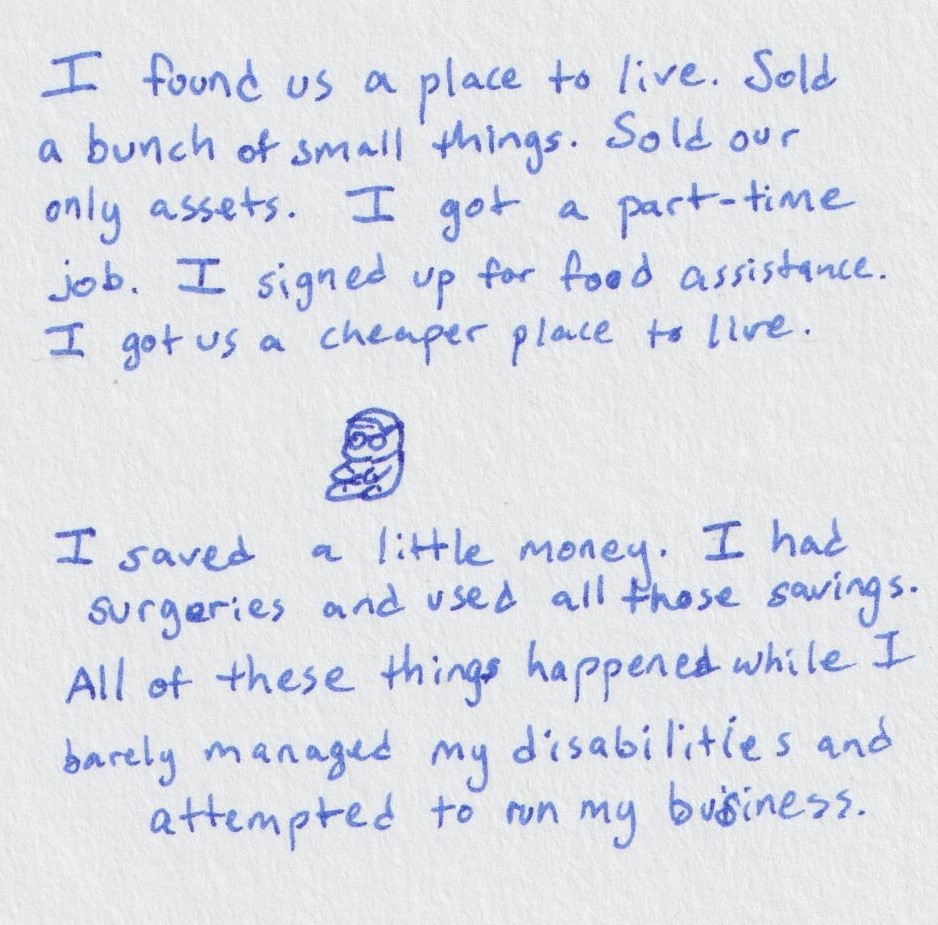 I found us a place to live. Sold
a bunch of small things. Sold our
only assets. I got a part-time
job. I signed up for food assistance.
I got us a cheaper place to live.
I saved a little money. I had
surgeries and used all those savings.
All of these things happened while I
barely managed my disabilities and
attempted to run my business.